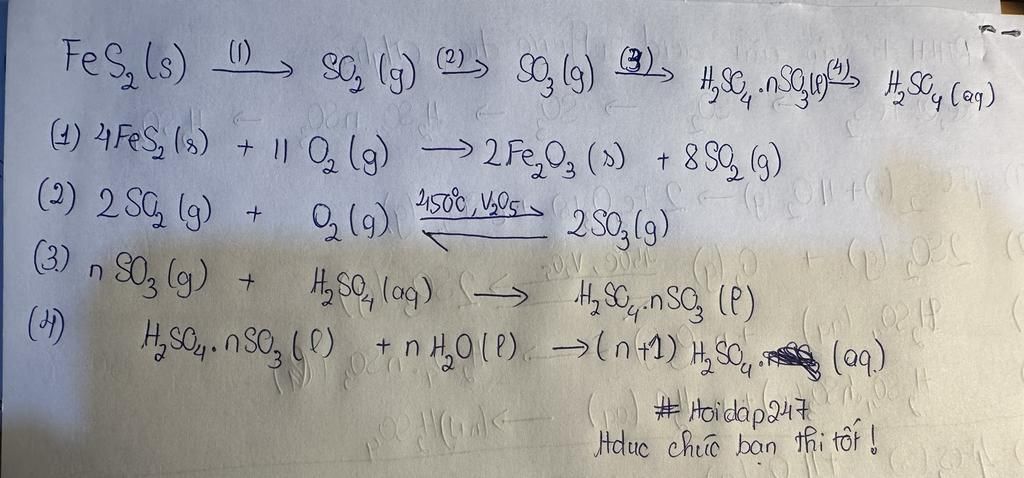 FeS₂(s) —(1)→ SO₂(g) —(2)→ SO₃(g) —(3)→ H₂SO₄.nSO₃(l) —(4)→ H₂SO₄(aq)
(1) 4FeS₂(s) + 11 O₂(g) → 2Fe₂O₃(s) + 8SO₂(g)
(2) 2SO₂(g) + O₂(g) ⇌ 450°C, V₂O₅ 2SO₃(g)
(3) nSO₃(g) + H₂SO₄(aq) → H₂SO₄.nSO₃(l)
(4) H₂SO₄.nSO₃(l) + nH₂O(l) → (n+1) H₂SO₄. (aq)
# Hoidap247
Hduc chúc bạn thi tốt!